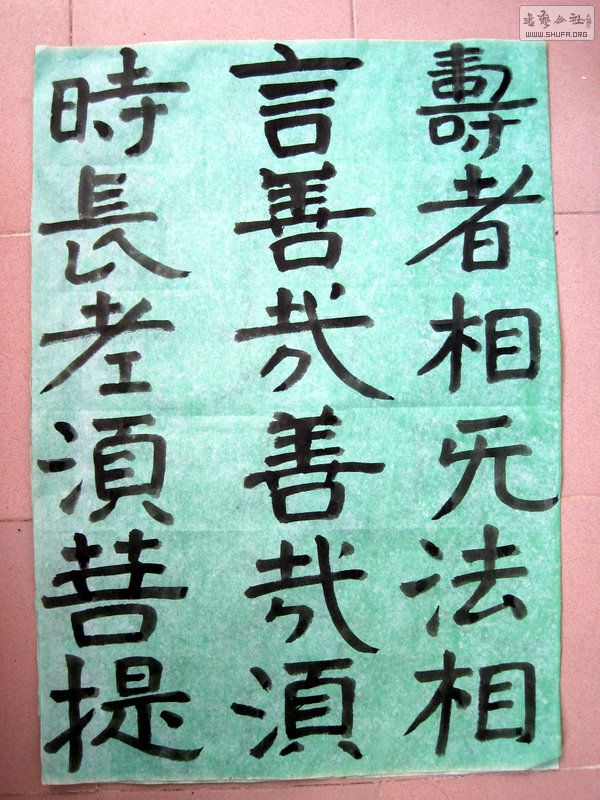 壽者相无法相
言善哉善哉湏
時長老湏菩提
書藝公社
WWW.SHUFA.ORG